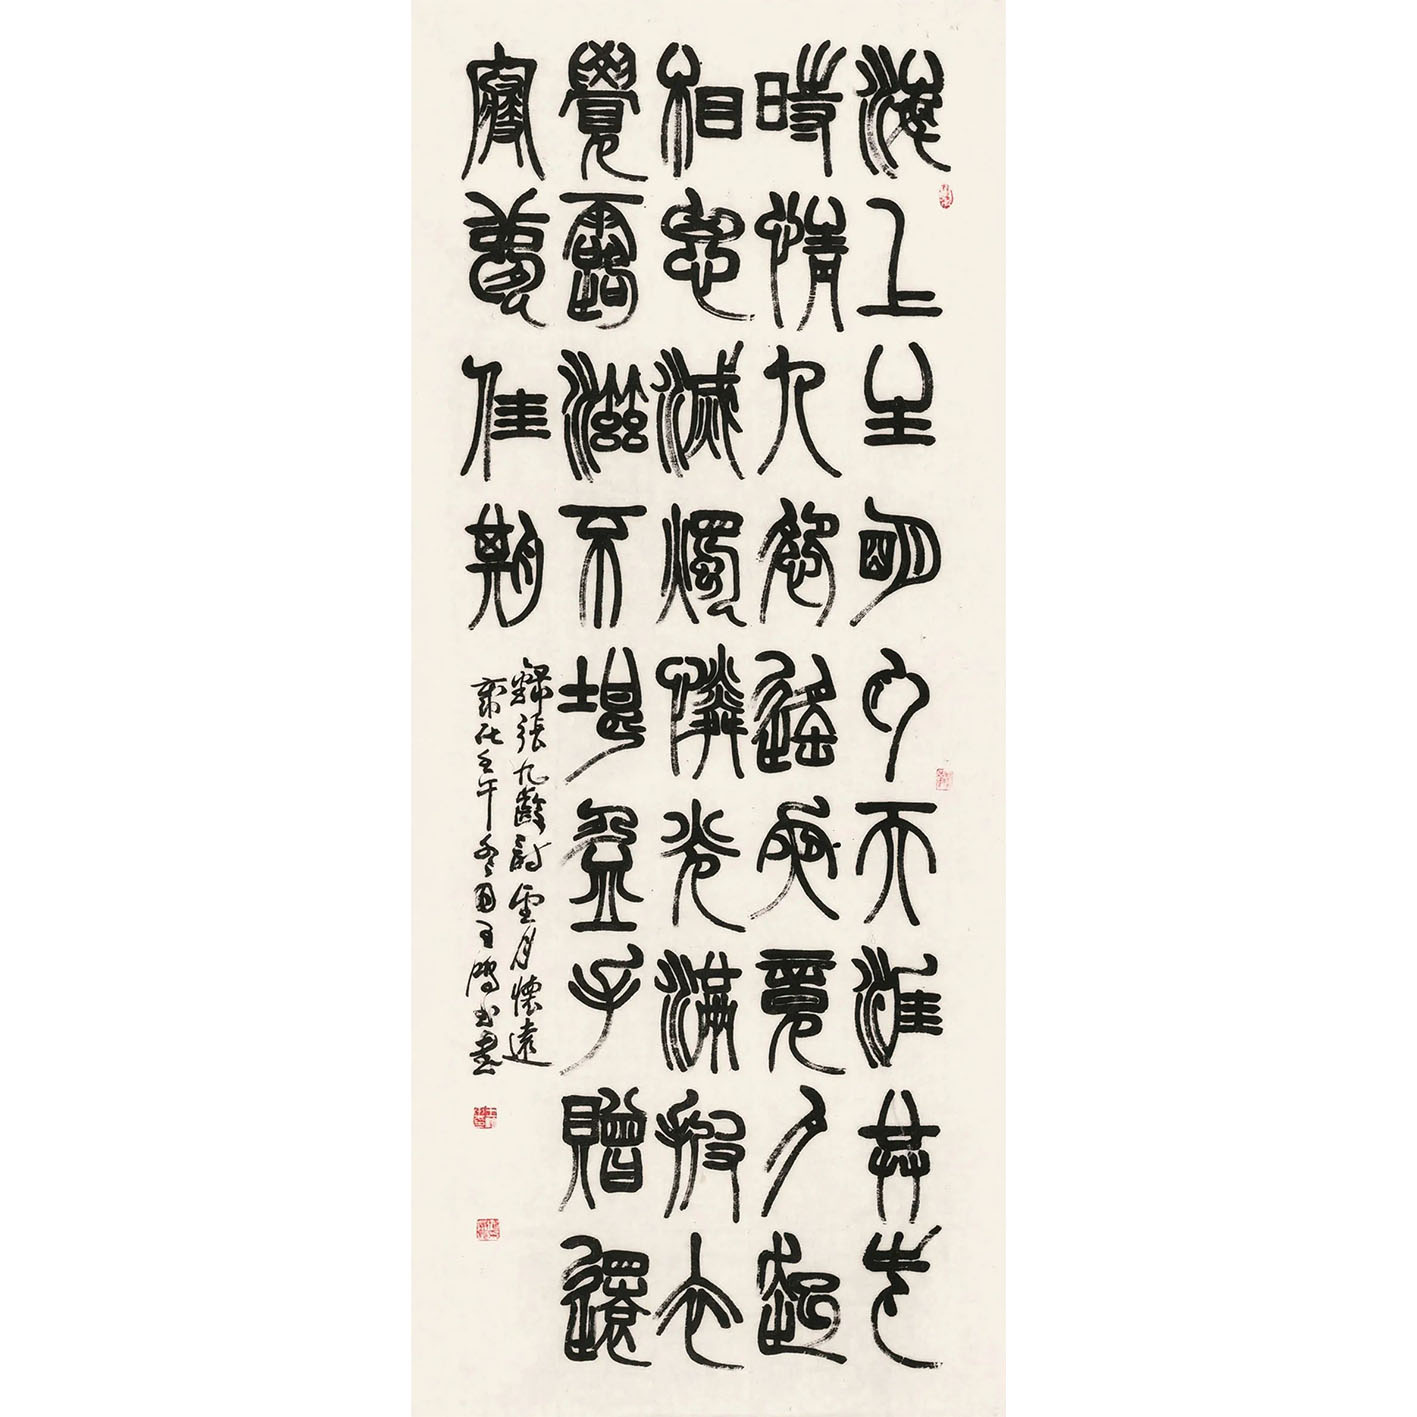 海上生明月天涯共此
時情人怨遙夜竟夕起
相思滅燭憐光滿披衣
覺露滋不堪盈手贈還
寢夢佳期
錄張九齡詩望月懷遠
歲在壬午冬王鴻書